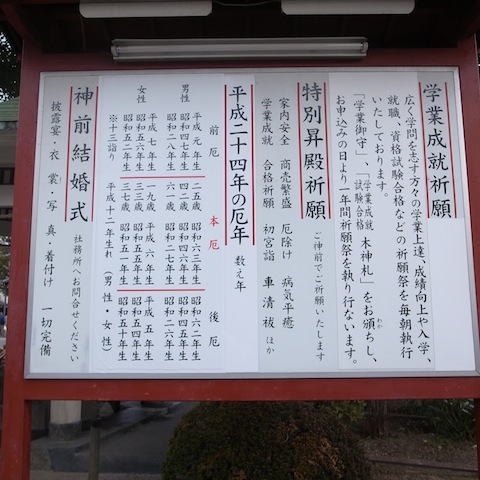 学業成就祈願
広く学問を志す方々の学業上達、成績向上や入学、
就職、資格試験合格などの祈願祭を毎朝執行
いたしております。
「学業御守」、「学業成就 試験合格 木神札」をお頒ちし、
わか
お申込みの日より一年間祈願祭を執り行ないます。
特別昇殿祈願 ご神前でご祈願いたします
家内安全 商売繁盛 厄除け 病気平癒
学業成就 合格祈願 初宮詣 車清祓 ほか
平成二十四年の厄年 数え年
前厄 本厄 後厄
男性 平成元年生 二五歳 昭和六三年生 昭和六二年生
昭和四七年生 四二歳 昭和四六年生 昭和四五年生
昭和二八年生 六一歳 昭和二七年生 昭和二六年生
女性 平成七年生 一九歳 平成六年生 平成五年生
昭和五六年生 三三歳 昭和五五年生 昭和五四年生
昭和五二年生 三七歳 昭和五一年生 昭和五十年生
※十三詣り 平成十二年生れ（男性・女性）
神前結婚式 社務所へお問合せください
披露宴・衣裳・写真・着付け 一切完備